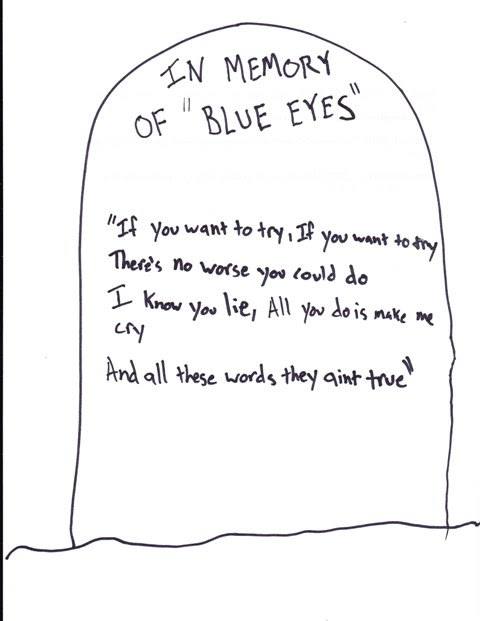 IN MEMORY
OF "BLUE EYES"
"If you want to try, If you want to try
There's no worse you could do
I know you lie, All you do is make me
cry
And all these words they aint true"